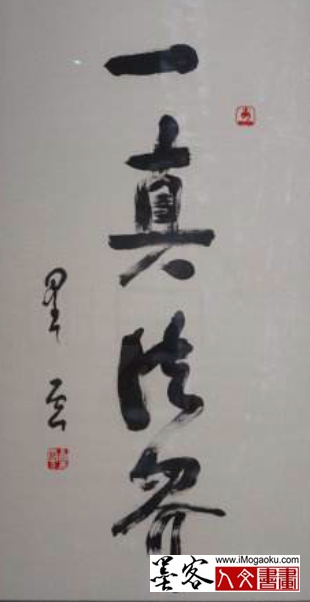 一真法界
星云
www.iMogaoku.com
墨客
人文書畫